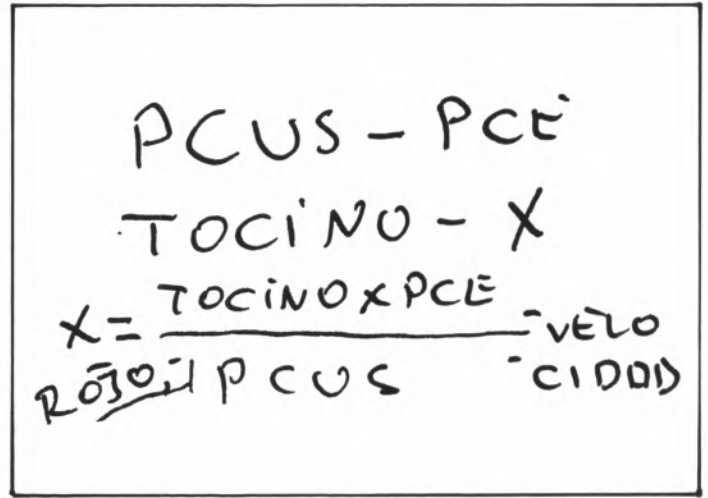 PCUS - PCE
TOCINO - X
X = TOCINO X PCE
PCUS
- VELO
- CIDAD
ROJO